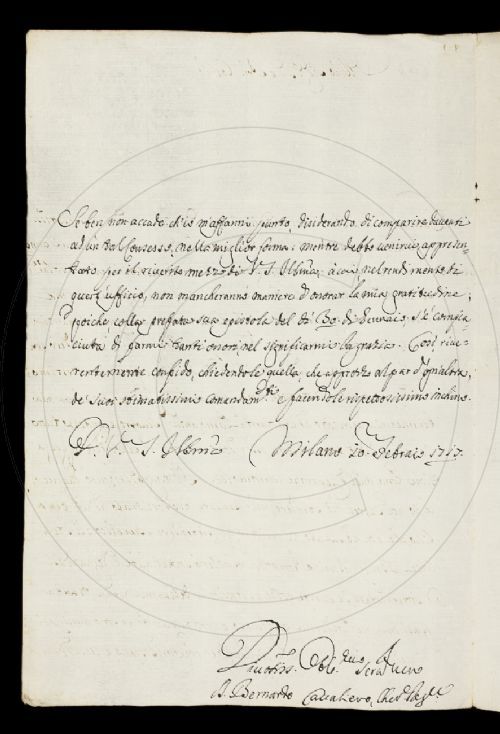 Se ben non accade ch'io m'affanni punto, disiderando di comparire davanti
ad un tal Consesso, nella miglior forma: mentre debbo venirvi appresen-
tato per il riverito mezzo di V. S. Illma; a cui, nel rendimento di
quest'ufficio, non mancheranno maniere d'onorar la mia gratitudine;
poiche colla prefata sua epistola del di 30 di Gennaio s'è compia-
ciuta di farmi tanti onori nel significarmi la grazia. Così rive-
rentemente confido, chiedendole quella che apprezzo al par d'ognaltra,
de' suoi stimatissimi comandam.ti e facendole rispettosissimo inchino.
D. V. S. Illma Milano 20 Febraio 1717.
Devotiss. Oblg.mo Servitore
D. Bernardo